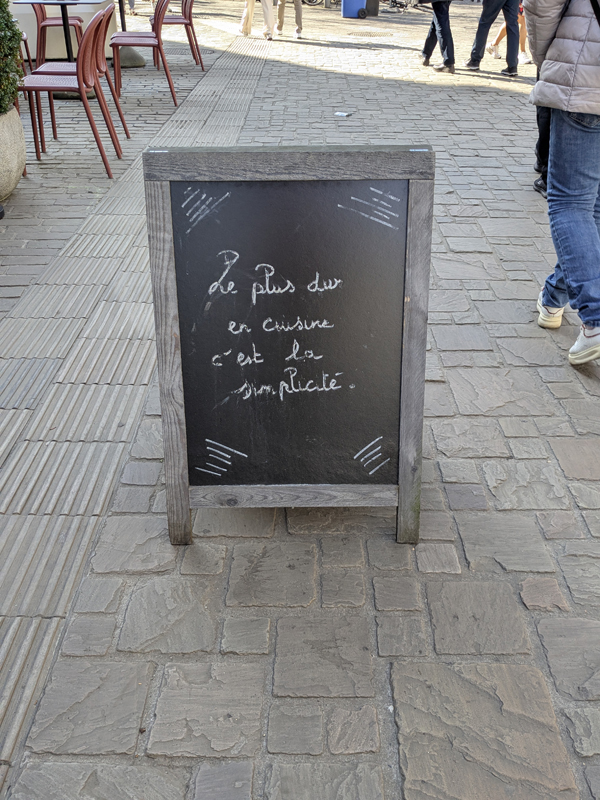 Le plus dur
en cuisine
c'est la
simplicité.